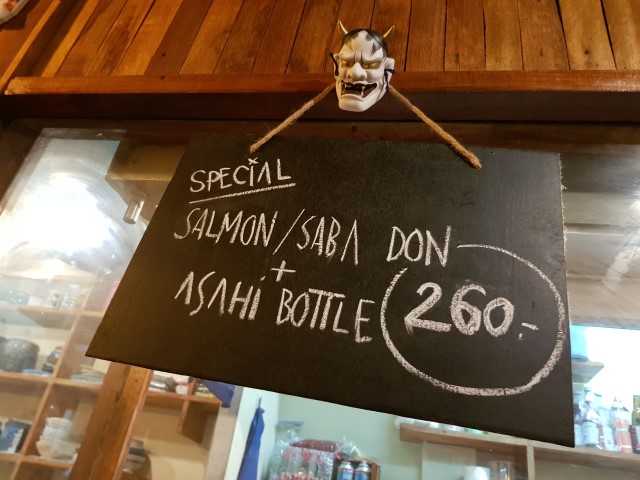 SPECIAL
SALMON/SABA DON
+
ASAHi BOTTLE 260.-